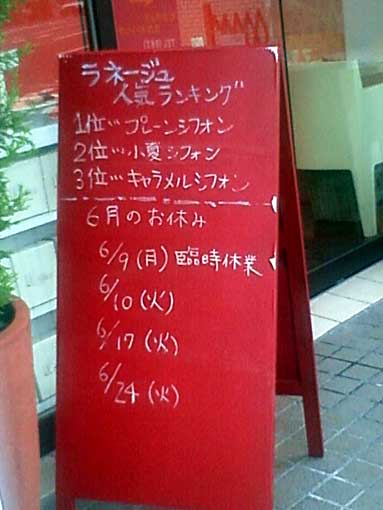 ラネージュ
人気ランキング
1位…プレーンシフォン
2位…小夏シフォン
3位…キャラメルシフォン
6月のお休み
6/9(月)臨時休業
6/10(火)
6/17(火)
6/24(火)